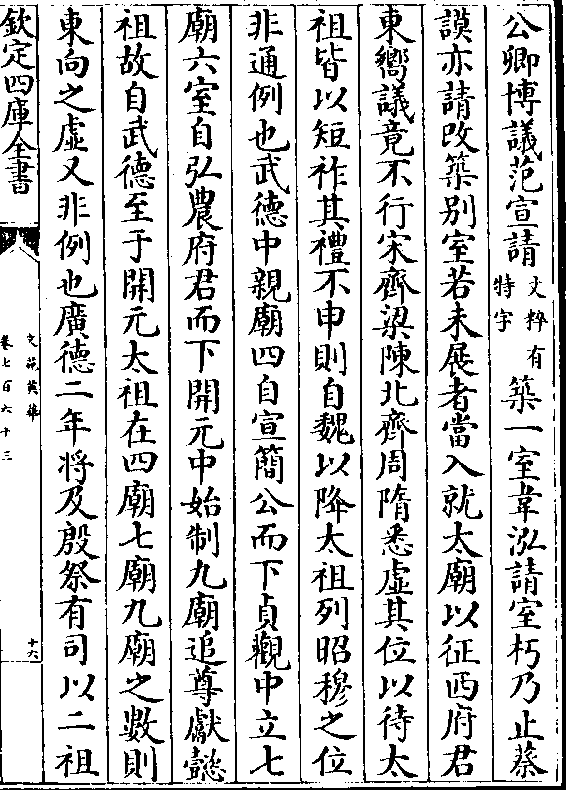 公卿博議范宣請文粹有特字築一室韋泓請室朽乃止蔡
謨亦請改築别室若未展者當入就太廟以征西府君
東嚮議竟不行宋齊梁陳北齊周隋悉虛其位以待太
祖皆以短祚其禮不申則自魏以降太祖列昭穆之位
非通例也武德中親廟四自宣簡公而下貞觀中立七
廟六室自弘農府君而下開元中始制九廟追尊獻懿
祖故自武德至于開元太祖在四廟七廟九廟之數則
東向之虛又非例也廣德二年將及殷祭有司以二祖
欽定四庫全書
文苑英華
卷七百六十三
十六